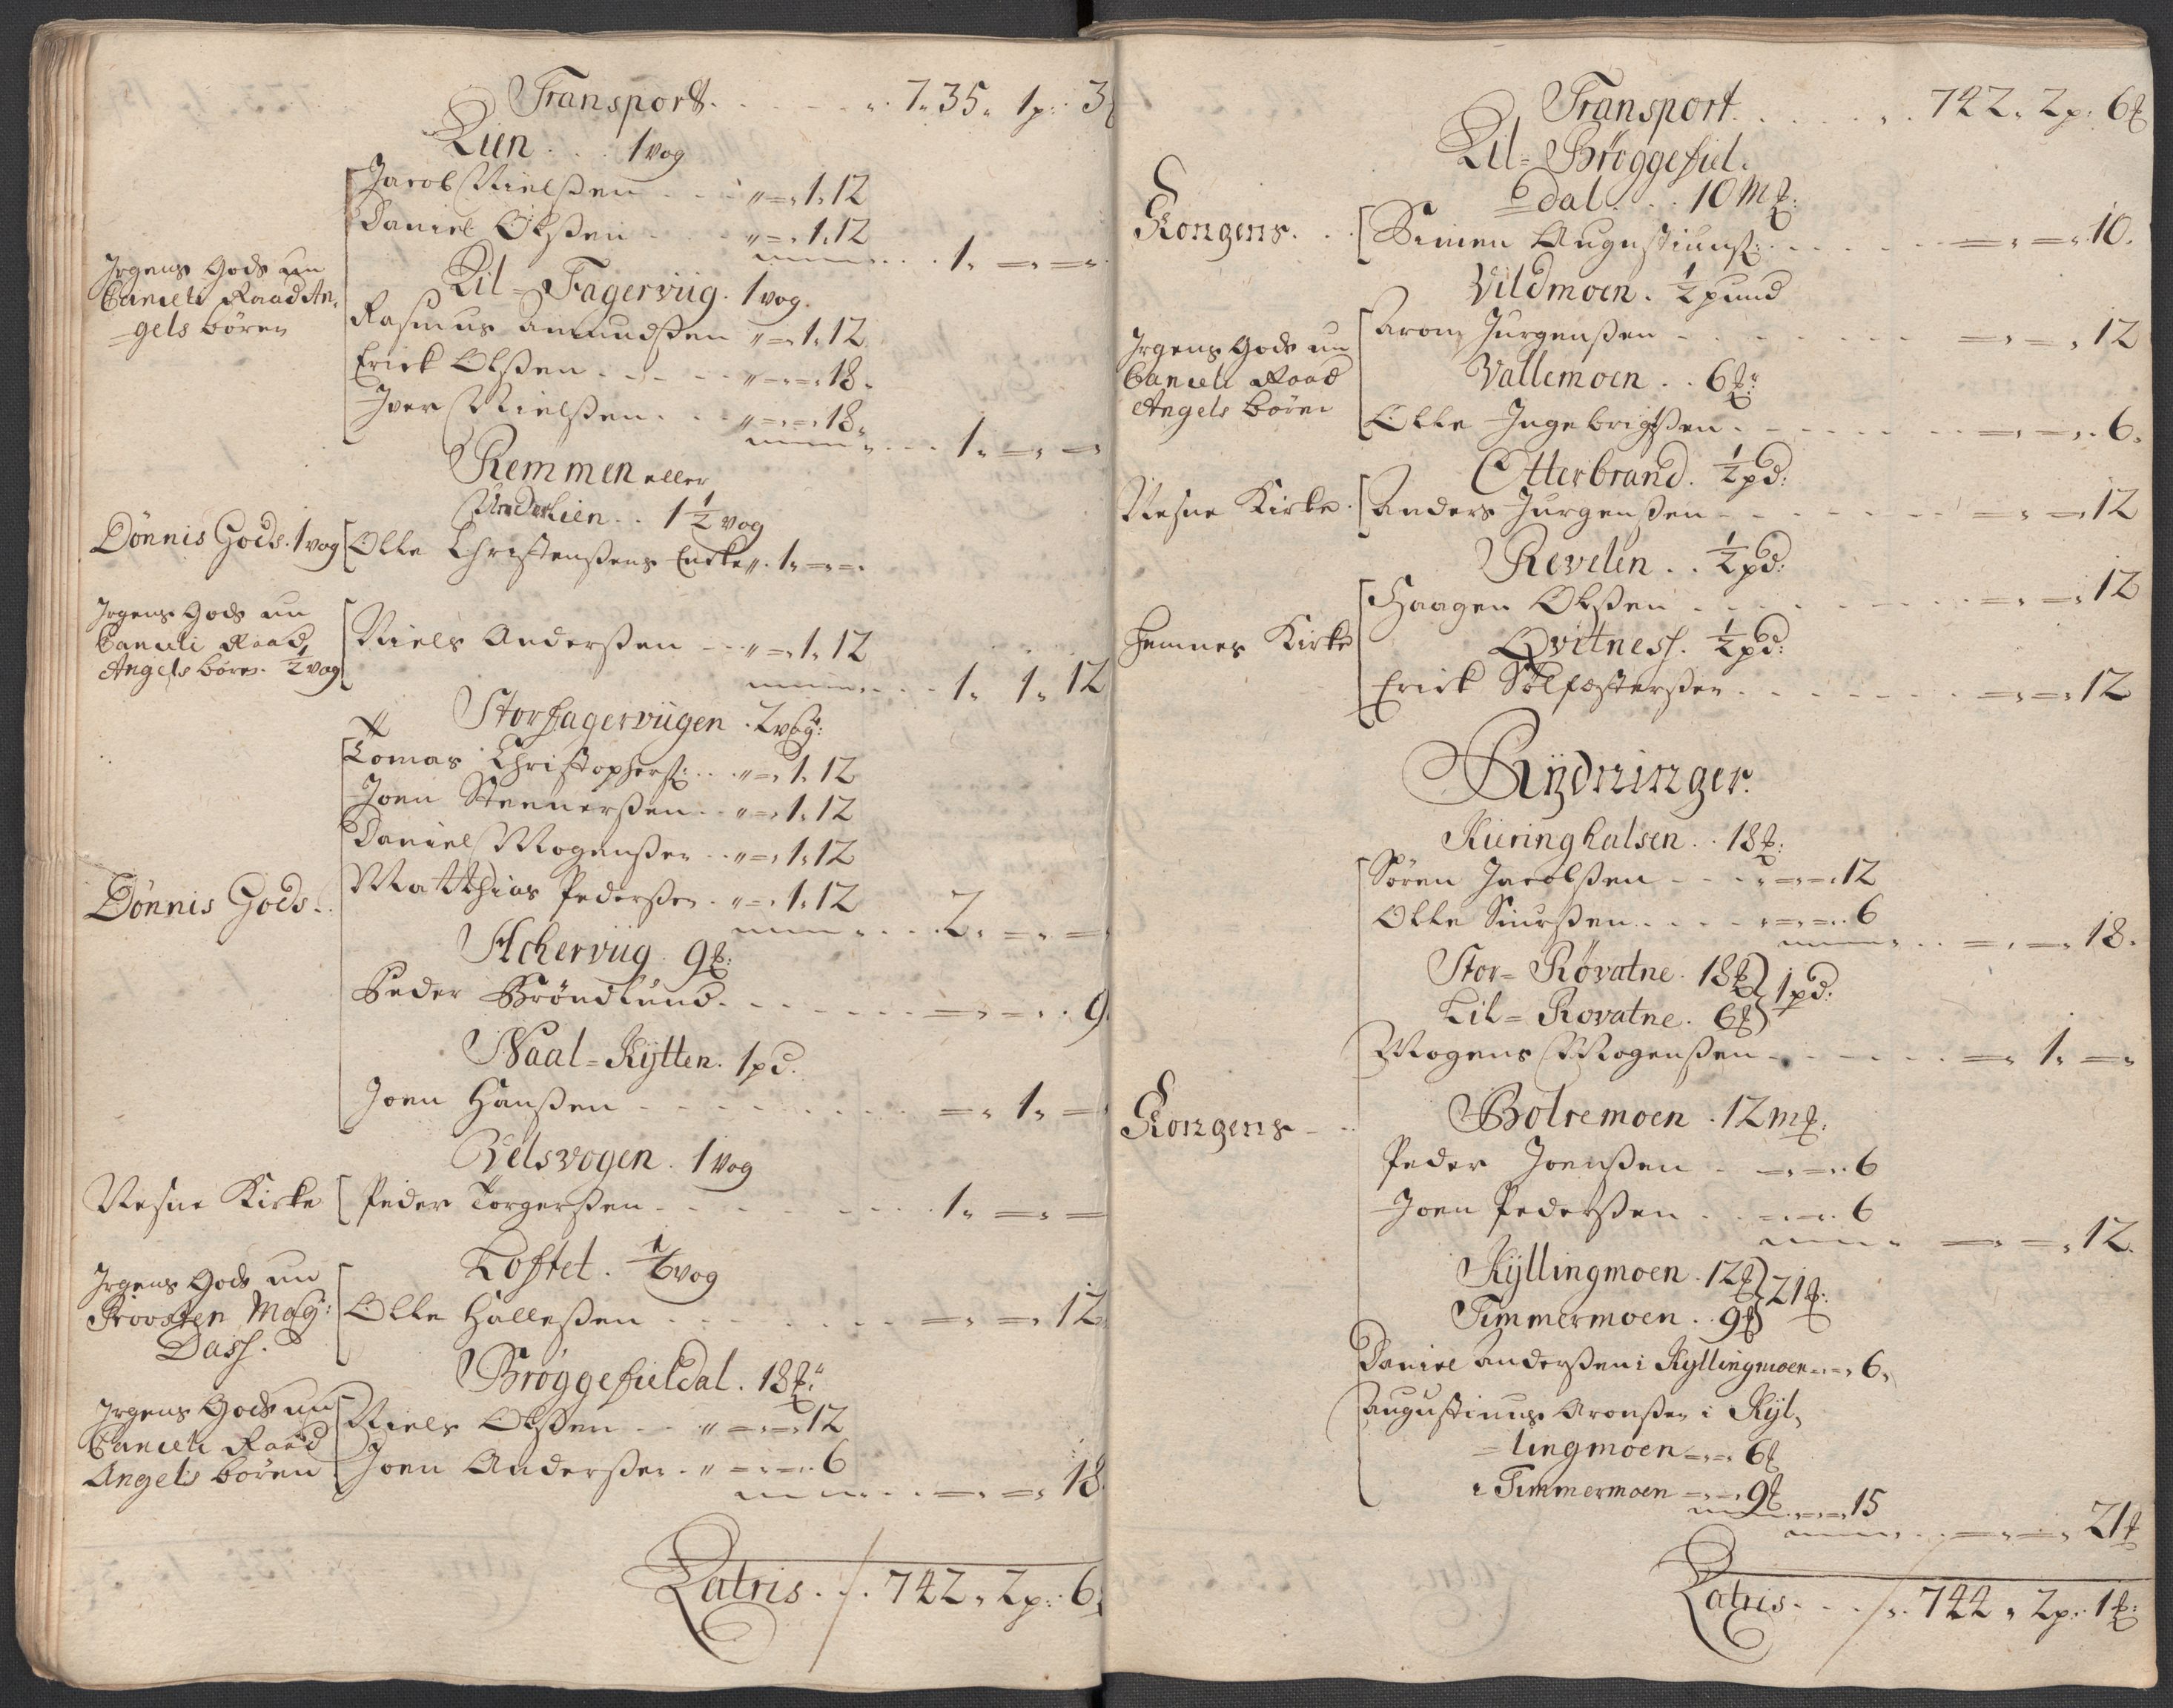 Transport . . . . . 7. 35. 1p: 3
Lien . . . 1 vog
Jacob Nielßen . . . „ = „ 1. 12
Daniel Olßen . . . „ = „ 1. 12
1. = „ =
Jrgens Gods un
Canceli Raad An,
=gels børen
Lil = Fagerviig. 1 vog.
Rasmus Amundßen „ = „ 1. 12
Erick Olßen . . . . „ = „ = „ 18.
Jver Nielßen . . . „ = „ = „ 18.
1. = „ =
Remmen eller
Underlien . . 1 1/2 vog
Dönnis Gods. 1 vog [Olle Christenßens Encke „. 1. = „ = .
Jrgens Gods un
Canceli Raad
Angels børen. 1/2 vog
Niels Anderßen . . „ = „ 1. 12
1. 1. 12
Storfagerviigen . 2 vog:
Tomas Christophers: . . „ = „ 1. 12
Joen Steenerßen . . „ = „ 1. 12
Daniel Mogenßen . . „ = „ 1. 12
Matthias Pederßen . „ = „ 1. 12
Dönnis Gods . .
2. = „ =
Acherviig. 9 ℔:
Peder Bröndlund . . . . . = „ = . . 9.
Naal = Rytten. 1 pd.
Joen Hanßen . . . . . . = „ 1. =
Zelsvogen . 1 vog
Nesne Kirke [ Peder Torgerßen . . . . . 1. = „ =
Loftet . 1/6 vog
Jrgens Gods un
Provsten Mag:
Dass.
Olle Halleßen . . . . . = „ = „ 12
Bröggefieldal . 18 ℔:
Jrgens Gods un
Canceli Raad
Angels børen
Niels Olßen . . „ = „ = „ 12
Joen Anderßen . „ = „ = „ 6
= „ = „ 18
Latris . / . 742. 2p: 6
Transport . . . . . 742. 2p: 6 ℔
Lil = Bröggefiel.
=dal . . . 10 m℔:
Kongens . . . [Simen Augustinus: . . . . = „ = „ 10.
Vildmoen . 1/2 pund
Jrgens Gods un
Canceli Raad
Angels børen
Aron Jurgenßen . . . . . = „ = „ 12
Vallemoen . . 6 ℔:
Olle Ingebrigtßen . . . . = „ = „ 6.
Otterbrand . 1/2 pd:
Nesne Kirke . [Anders Jurgenßen . . . . = „ = „ 12
Revelen . . 1/2 pd:
Haagen Olßen . . . . . = „ = „ 12
Hemnes Kirke
Qvitness. 1/2 pd:
Erick Sölfesterßen . . . . = „ = „ 12
Rydninger.
Kieringhalsen . . 18 ℔:
Sören Jacobßen . . . „ = „ = „ 12
Olle Siurßen . . . . „ = „ = „ 6
= „ = „ 18.
Stor = Røvatne . 18 ℔ } 1 pd:
Lil = Rovatne . 6 ℔ }
Mogens Mogenßen . . . . = „ 1. = „
Kongens . . .
Bolremoen . 12 m℔:
Peder Joenßen . = „ = „ 6
Joen Pederßen . . = „ = „ 6
= „ = „ 12.
Kyllingmoen . 12 ℔ } 21 ℔:
Timmermoen . . 9 ℔ }
Daniel Anderßen i Kyllingmoen = „ = „ 6.
Augustinus Aronßen i Kyl,
=lingmoen = „ = „ 6 ℔
i Timmermoen = „ = „ 9 ℔
= „ = „ 15
= „ = „ 21 ℔
Latris . . . / . 744. 2p: 1 ℔: